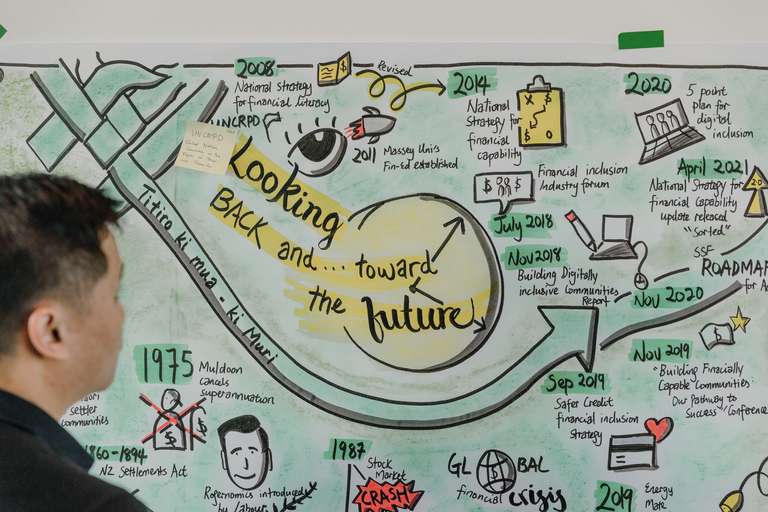 2008
National Strategy
for financial Literacy
UNCRPD
UNCRPD
Revised
2011 Massey Uni's
Fin-Ed established
2014
National
Strategy for
financial
capability
2020
5 point
plan for
digital
inclusion
Looking
BACK and... toward
the future
Titiro ki mua - ki Muri
Financial inclusion
Industry forum
July 2018
Nov 2018
Building Digitally
inclusive Communities
Report
April 2021
National Strategy for
financial Capability
update released
"Sorted"
SSF
ROADMAP
for
Nov 2020
Nov 2019
"Building Finacially
Capable Communities
Our Pathway to
Success" Conference
Sep 2019
Safer Credit
financial inclusion
strategy
2019
Energy
Mate
1975
Muldoon
cancels
superannuation
settler
communities
1860-1894
NZ Settlements Act
Rogernomics introduced
by Labour
1987
Stock
Market
CRASH
GLOBAL
financial crisis